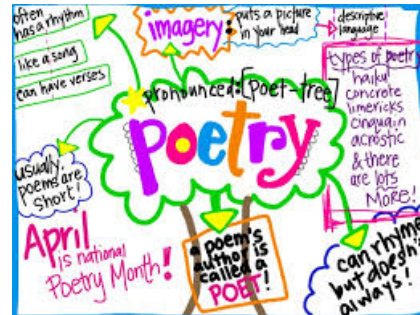 often
has a rhythm
like a song
can have verses
imagery:
puts a picture
in your head
descriptive
language
pronounced:[poet-tree]
poetry
types of poetry
haiku
concrete
limericks
cinquain
acrostic
& there
are lots
MORE!
usually,
poems are
short!
April
is national
Poetry Month!
a poem's
author is
called a
POET!
can rhyme
but doesn't
always!